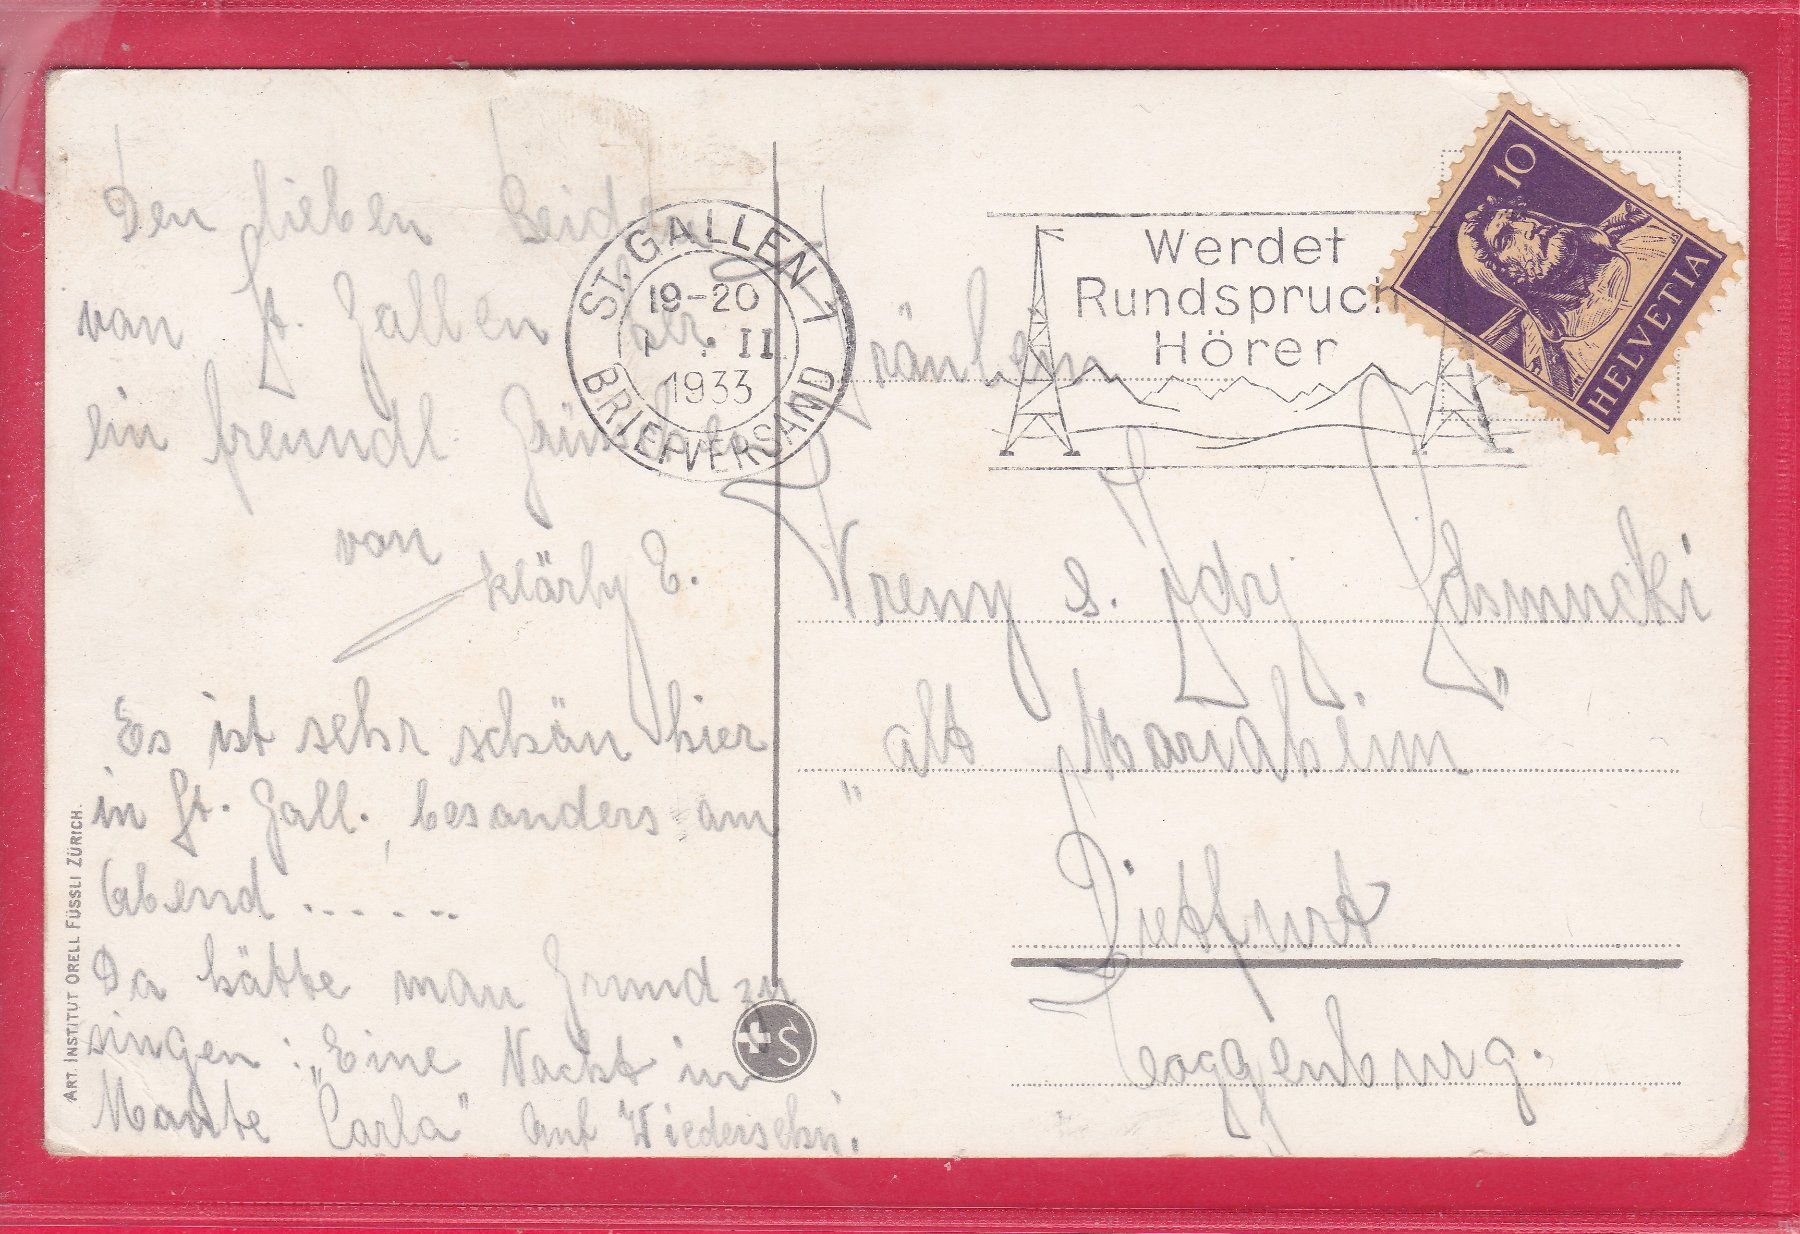 Den lieben Beiden
van St. Gallen her
ein freundl. Grüsschen
van
Klärly E.
Es ist sehr schön hier
in St. Gall. besonders am
Abend ......
Da hätte man Grund zu
singen: „Eine Nacht in
Mante "Carla" Auf Wiedersehn.
ART. INSTITUT ORELL FÜSSLI ZÜRICH.
ST. GALLEN 1
19-20
II
1933
BRIEFVERSAND
Werdet
Rundspruch
Hörer
10
HELVETIA
Fräulein
Vreny s. Idy Schmucki
"alt Mariaheim"
Dietfurt
Toggenburg.
S